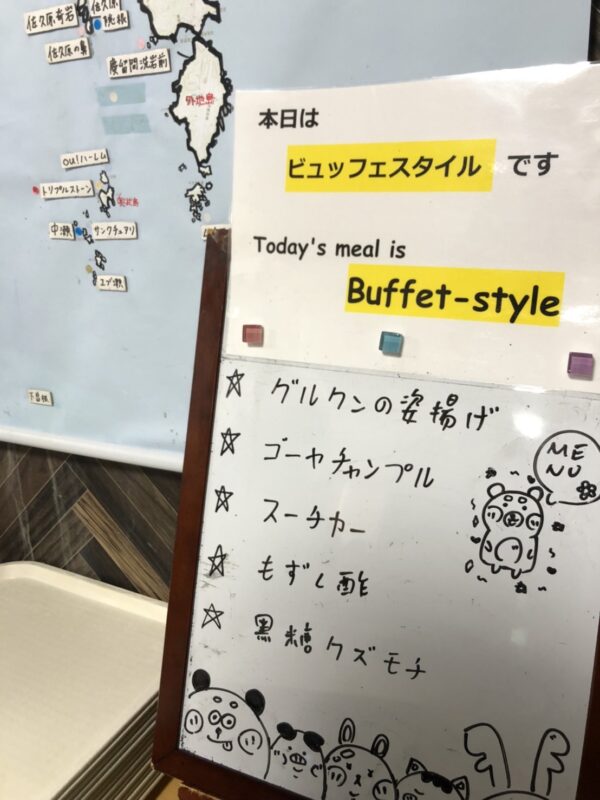 佐久原奇岩
佐久原
佐久原の鼻
慶留間洗岩前
外地島
OU!ハーレム
トリプルストーン
中瀬
サンクチュアリ
下曽根
本日は
ビュッフェスタイル です
Today's meal is
Buffet-style
☆ グルクンの姿揚げ
☆ ゴーヤチャンプル
☆ スーチカー
☆ もずく酢
☆ 黒糖クズモチ
ME
NU